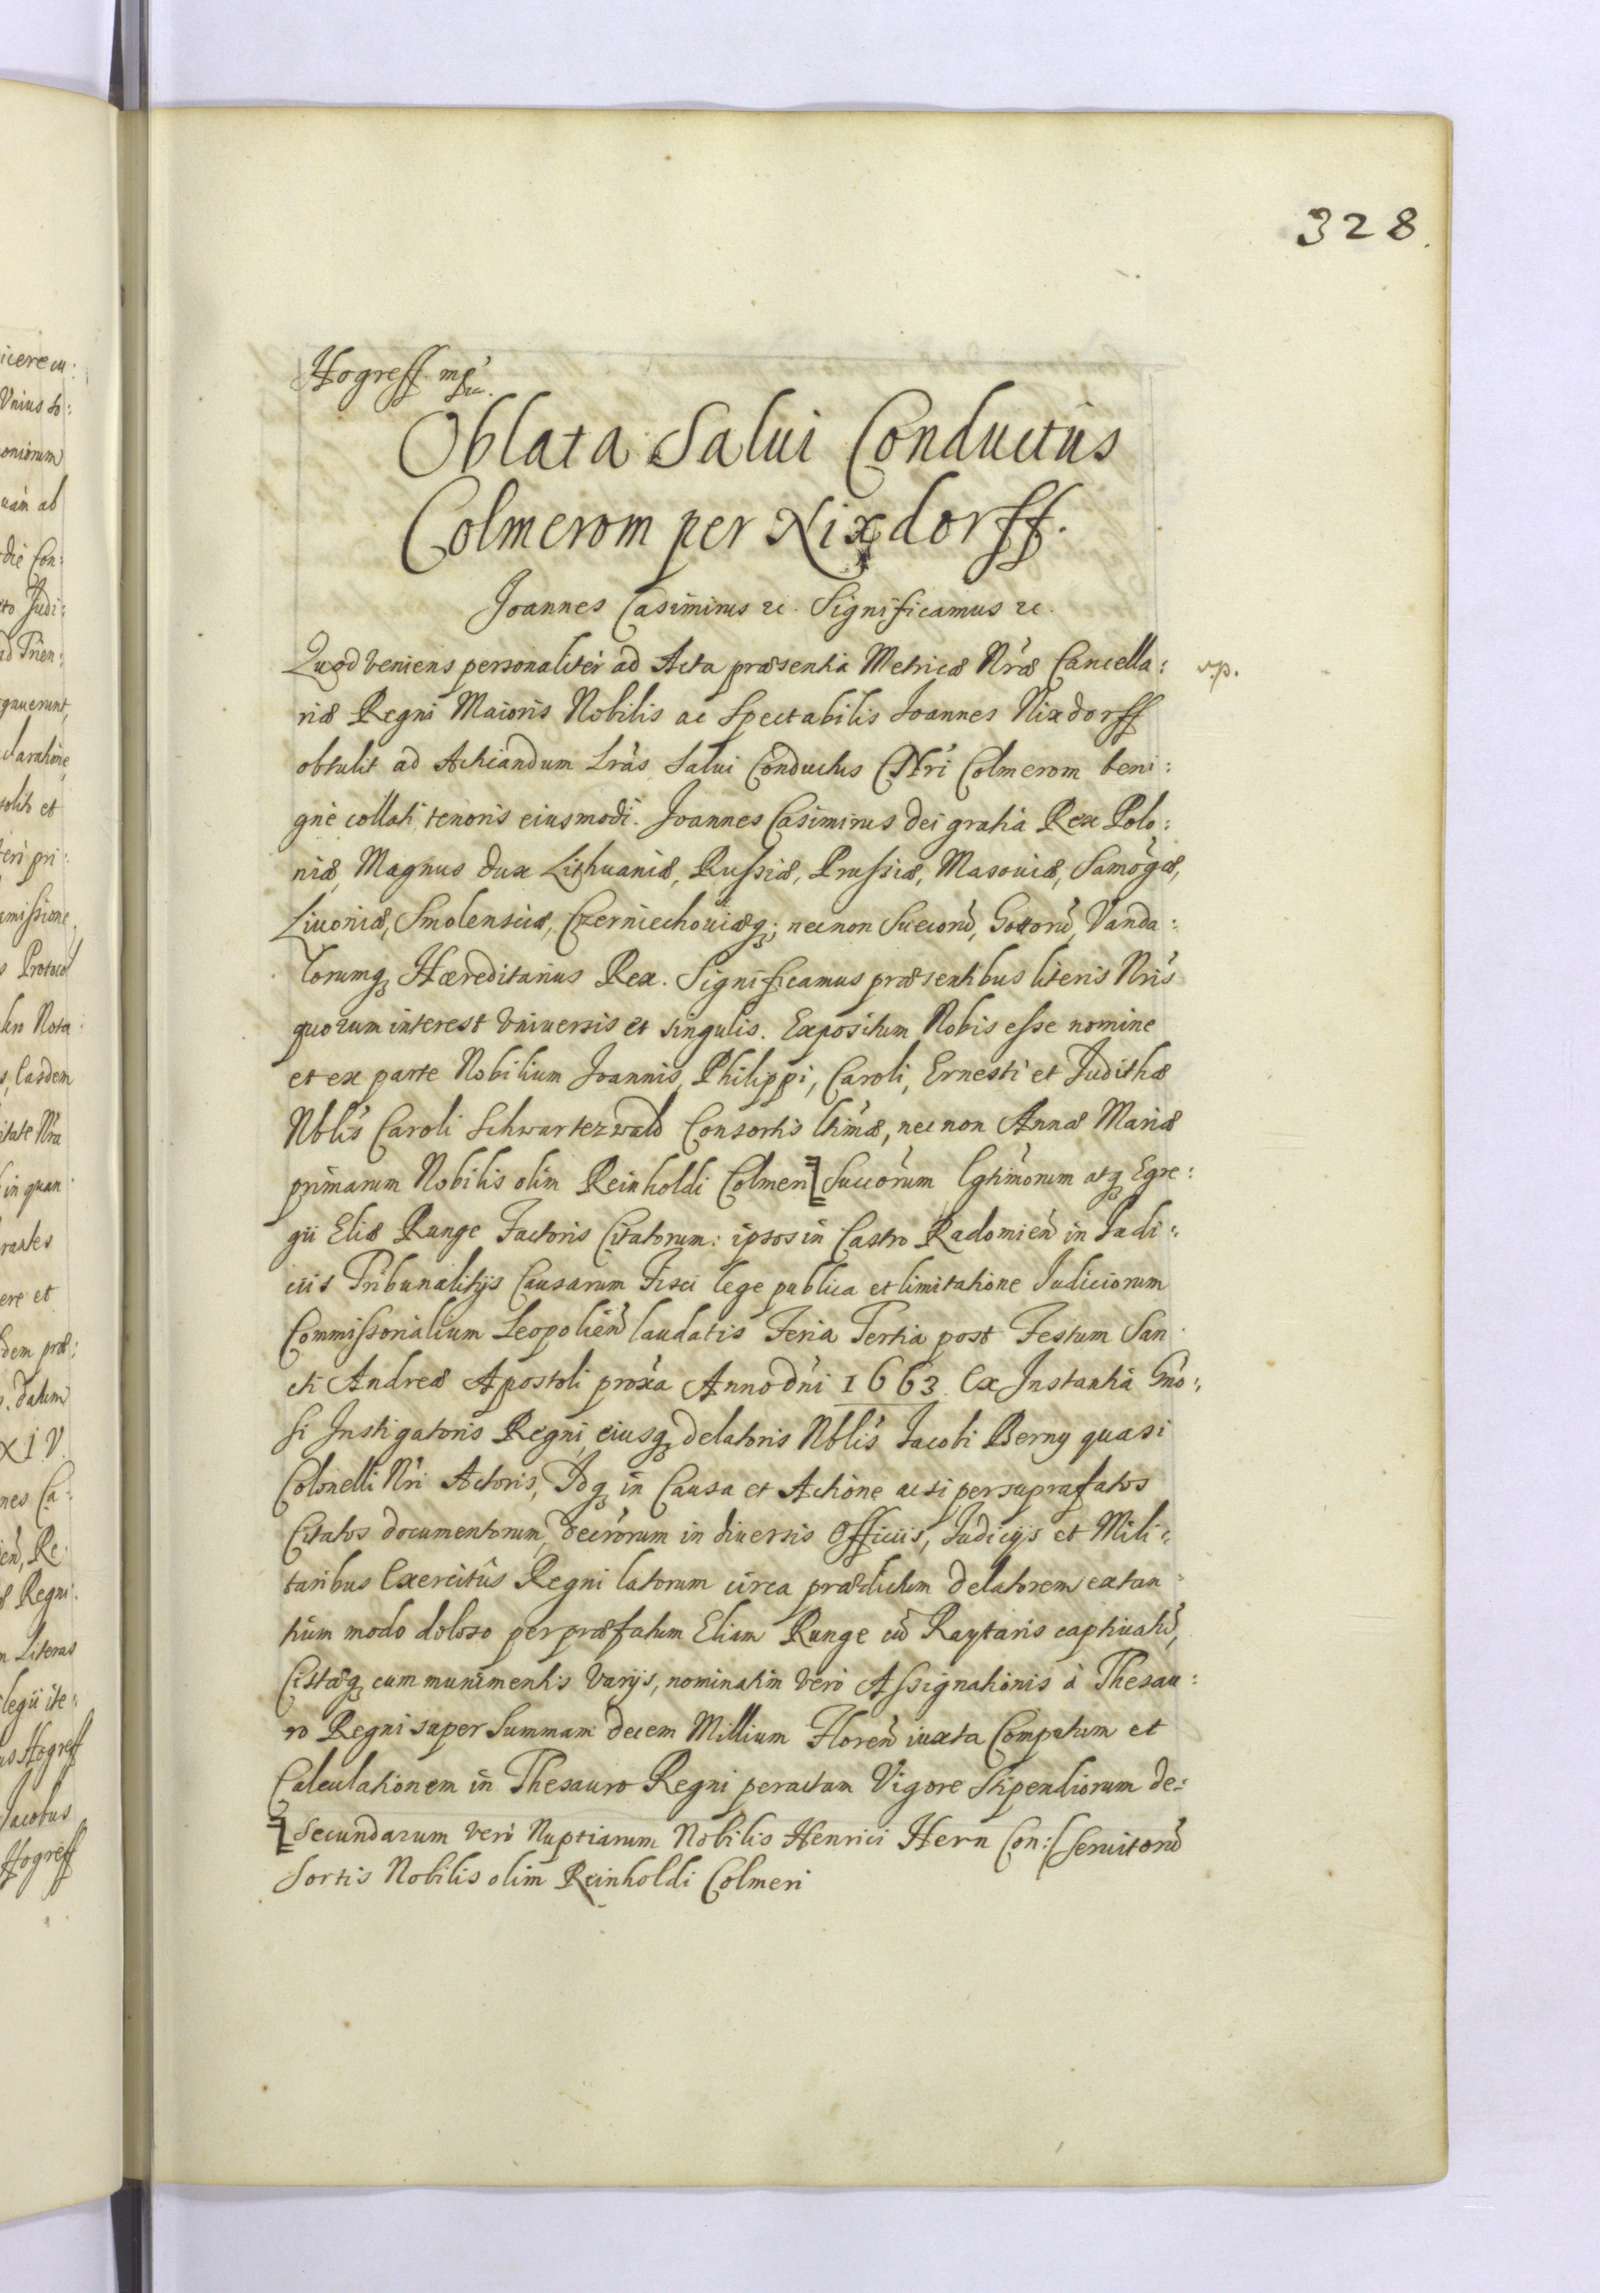 328.
Hogreff mp
Oblata Salui Conductus
Colmerom per Nixdorff.
Joannes Casimirus &c. Significamus &c.
Quod veniens personaliter ad Acta præsentia Metricæ Nræ Cancella:
riæ Regni Maioris Nobilis ac Spectabilis Joannes Nixdorff
obtulit ad Acticandum Lras Salui Conductus Nri Colmerom beni:
gne collati tenoris eiusmodi. Joannes Casimirus dei gratia Rex Polo:
niæ, Magnus dux Lithuaniæ, Russiæ, Prussiæ, Masouiæ, Samogæ,
Liuoniæ, Smolensciæ, Czerniechouiæq; necnon Suecorũ, Gottorũ, Vanda:
lorumq Hæreditarius Rex. Significamus præsentibus literis Nris
quorum interest vniuersis et singulis. Expositum Nobis esse nomine
et ex parte Nobilium Joannis, Philippi, Caroli, Ernesti et Judithæ
Nblis Caroli Schwartezwald Consortis ltimæ, nec non Annæ Mariæ
primarum Nobilis olim Reinholdi Colmeri Succorum lgtimorum atq Egre:
gii Eliæ Runge Factoris Citatorum: ipsos in Castro Radomieñ in Judi:
ciis Tribunalitijs Causarum Fisci lege publica et limitatione Judiciorum
Commissorialium Leopolieñ laudatis Feria Tertia post Festum San
cti Andreæ Apostoli proxa Anno dni 1663. Ex Instantia Gno:
si Instigatoris Regni, eiusq delatoris Nblis Jacobi Berny quasi
Colonelli Nri Actoris, Idq in Causa et Actione ac si per suprafatos
Citatos documentorum, decrorum in diuersis Officiis, Judicijs et Mili:
taribus Exercitûs Regni latorum circa prædictum delatorem extan:
tium modo doloso per præfatum Eliam Runge cũ Raytaris captiuatũ,
Cistæq cum munimentis varijs, nominatim vero Assignationis à Thesau:
ro Regni super Summam decem Millium Floreñ iuxta Computum et
Calculationem in Thesauro Regni peractam Vigore Stipendiorum de:
seruitorũ
Secundarum vero Nuptiarum Nobilis Henrici Hern Con:
sortis Nobilis olim Reinholdi Colmeri